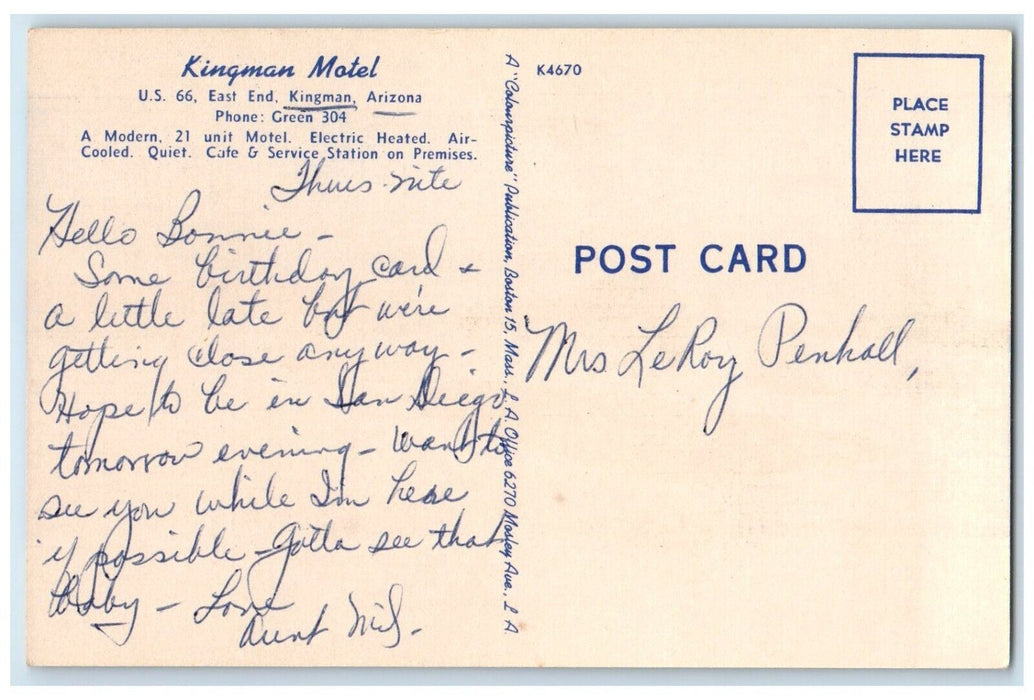 Kingman Motel
U.S. 66, East End, Kingman, Arizona
Phone: Green 304
A Modern, 21 unit Motel. Electric Heated. Air-
Cooled. Quiet. Cafe & Service Station on Premises.
Thurs. nite
Hello Bonnie -
Some birthday card &
a little late but we're
getting close anyway -
Hope to be in San Diego
tomorrow evening - Want to
see you while I'm here
if possible - Gotta see that
Baby - Love
Aunt
A "Colourpicture" Publication, Boston 15, Mass., L. A. Office 6270 Mosley Ave., L A
K4670
PLACE
STAMP
HERE
POST CARD
Mrs LeRoy Penhall,